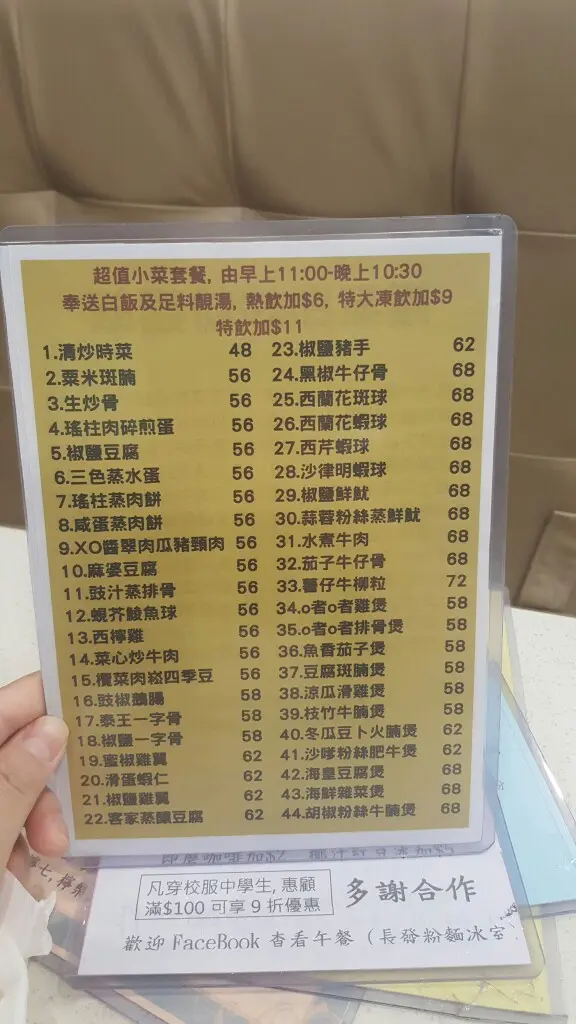 超值小菜套餐, 由早上11:00-晚上10:30
奉送白飯及足料靚湯, 熱飲加$6, 特大凍飲加$9
特飲加$11
1.清炒時菜 48
2.粟米斑腩 56
3.生炒骨 56
4.瑤柱肉碎煎蛋 56
5.椒鹽豆腐 56
6.三色蒸水蛋 56
7.瑤柱蒸肉餅 56
8.咸蛋蒸肉餅 56
9.XO醬翠肉瓜豬頸肉 56
10.麻婆豆腐 56
11.豉汁蒸排骨 56
12.蜆芥鯪魚球 56
13.西檸雞 56
14.菜心炒牛肉 56
15.欖菜肉崧四季豆 56
16.豉椒鵝腸 58
17.泰王一字骨 58
18.椒鹽一字骨 58
19.蜜椒雞翼 62
20.滑蛋蝦仁 62
21.椒鹽雞翼 62
22.客家蒸釀豆腐 62
23.椒鹽豬手 62
24.黑椒牛仔骨 68
25.西蘭花斑球 68
26.西蘭花蝦球 68
27.西芹蝦球 68
28.沙律明蝦球 68
29.椒鹽鮮魷 68
30.蒜蓉粉絲蒸鮮魷 68
31.水煮牛肉 68
32.茄子牛仔骨 68
33.薯仔牛柳粒 72
34.o者o者雞煲 58
35.o者o者排骨煲 58
36.魚香茄子煲 58
37.豆腐斑腩煲 58
38.涼瓜滑雞煲 58
39.枝竹牛腩煲 58
40.冬瓜豆卜火腩煲 62
41.沙嗲粉絲肥牛煲 62
42.海皇豆腐煲 68
43.海鮮雜菜煲 68
44.胡椒粉絲牛腩煲 68
凡穿校服中學生, 惠顧
滿$100 可享 9 折優惠
多謝合作
歡迎 FaceBook 查看午餐 (長發粉麵冰室)